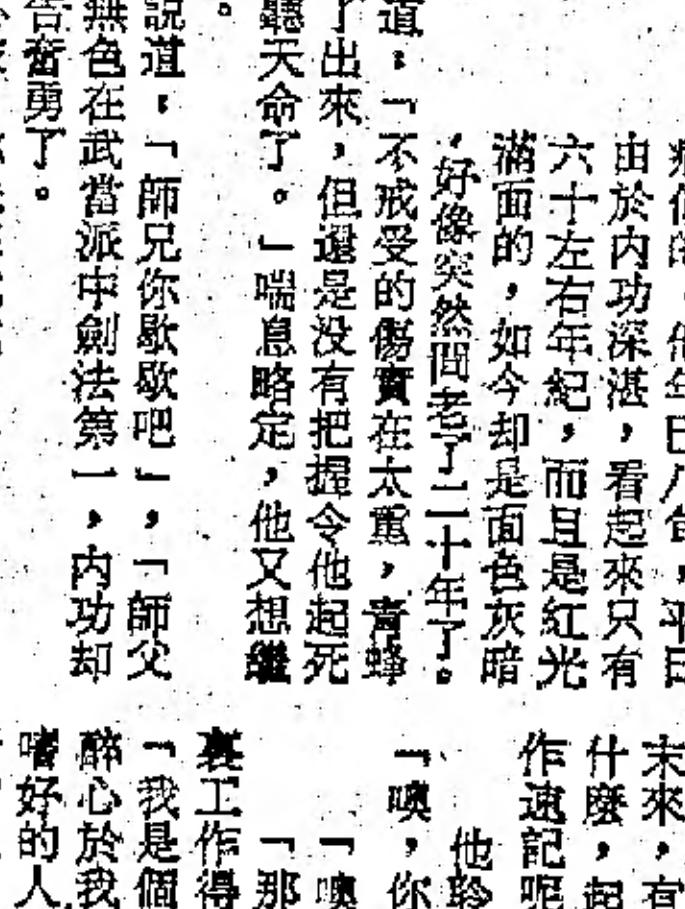 年已八旬，平日
由於内功深湛，看起來只有
六十左右年紀，而且是紅光
滿面的，如今却是面色灰暗
，好像突然間老了二十年了。
道：「不戒受的傷實在太重，青蜂
了出來，但還是没有把握令他起死
聽天命了。」喘息略定，他又想繼
。
説道：「師兄你歇歇吧」，「師父
無色在武當派中劍法第一，内功却
告奮勇了。
末來，有
什麼，起
作速記呢
他聆
「噢，你
「噢
「那
裏工作得
「我是個
醉心於我
嗜好的人